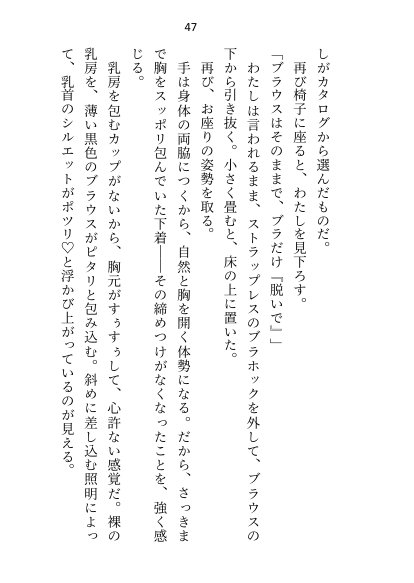 47
しがカタログから選んだものだ。
再び椅子に座ると、わたしを見下ろす。
「ブラウスはそのままで、ブラだけ『脱いで』」
わたしは言われるまま、ストラップレスのブラホックを外して、ブラウスの
下から引き抜く。小さく畳むと、床の上に置いた。
再び、お座りの姿勢を取る。
手は身体の両脇につくから、自然と胸を開く体勢になる。だから、さっきま
で胸をスッポリ包んでいた下着――その締めつけがなくなったことを、強く感
じる。
乳房を包むカップがないから、胸元がすぅすぅして、心許ない感覚だ。裸の
乳房を、薄い黒色のブラウスがピタリと包み込む。斜めに差し込む照明によっ
て、乳首のシルエットがポツリ♡と浮かび上がっているのが見える。